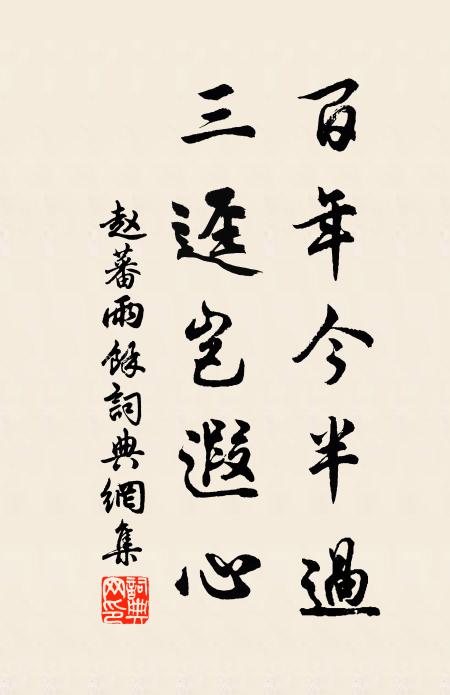 百年今半過
三逕豈遐心
赵蕃雨餘詞典網集
詞典
网印